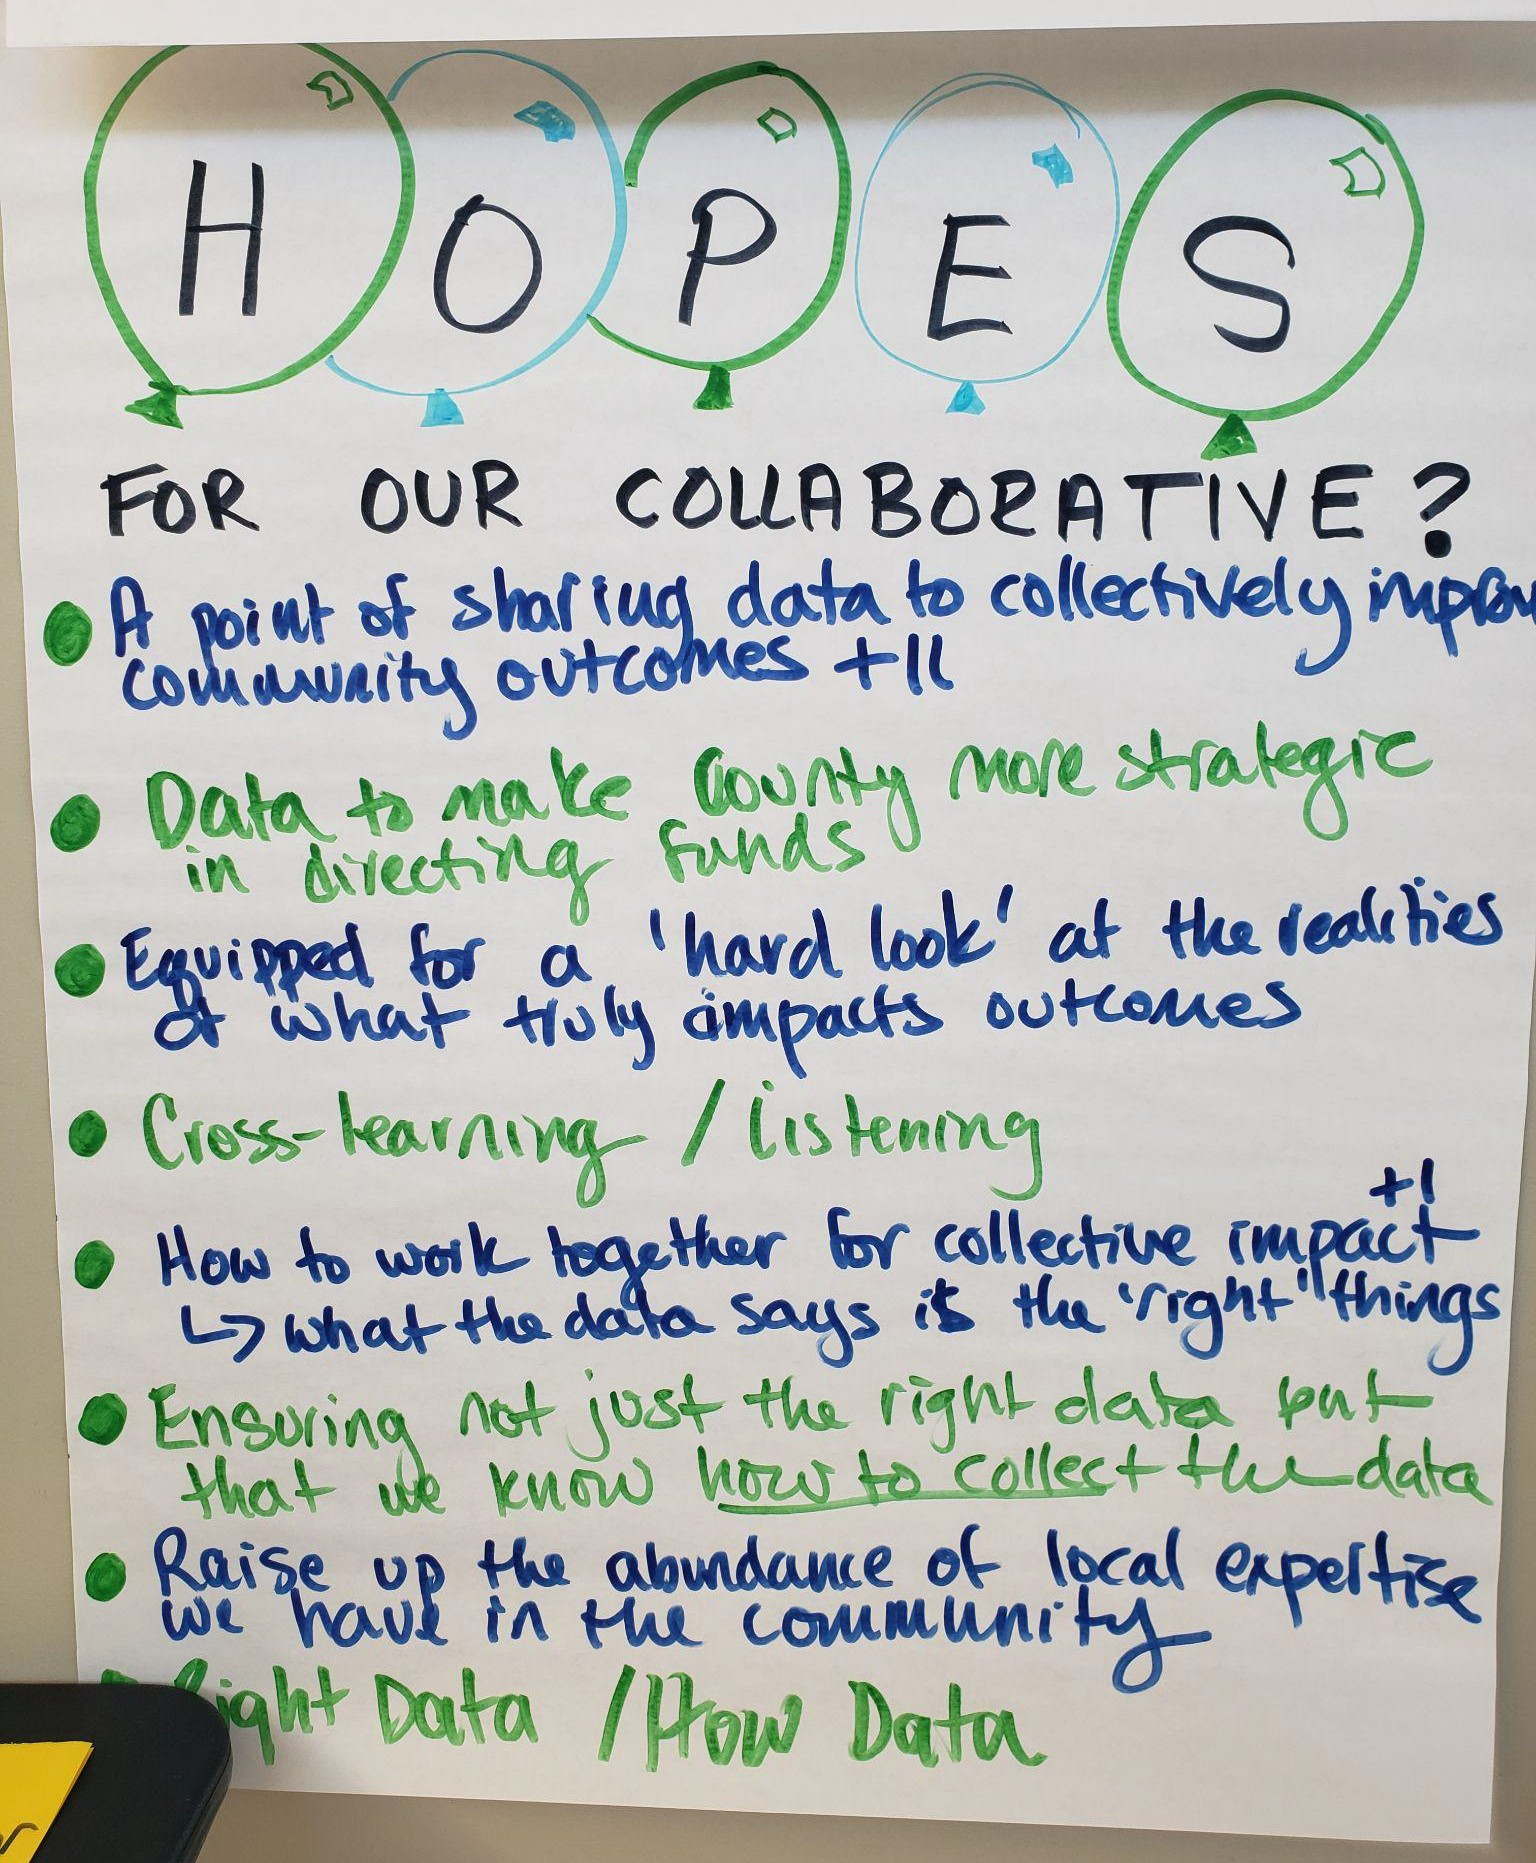 HOPES
FOR OUR COLLABORATIVE?
A point of sharing data to collectively improv
community outcomes +11
Data to make County more strategic
in directing funds
Equipped for a 'hard look' at the realities
of what truly impacts outcomes
Cross-learning / Listening
+1
How to work together for collective impact
↳ what the data says is the "right" things
Ensuring not just the right data but
that we know how to collect the data
Raise up the abundance of local expertise
we have in the community
Right Data / How Data